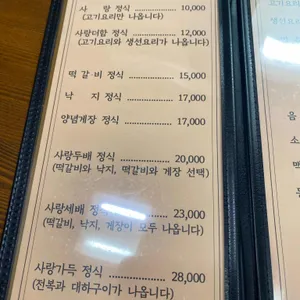 사 랑 정식 ............ 10,000
(고기요리만 나옵니다)
사랑더함 정식 ............ 12,000
(고기요리와 생선요리가 나옵니다)
떡 갈 비 정식 ............ 15,000
낙 지 정식 ............ 17,000
양념게장 정식 ............ 17,000
사랑두배 정식 ............ 20,000
(떡갈비와 낙지, 떡갈비와 게장 선택)
사랑세배 정식 ............ 23,000
(떡갈비, 낙지, 게장이 모두 나옵니다)
사랑가득 정식 ............ 28,000
(전복과 대하구이가 나옵니다)
음
소
맥